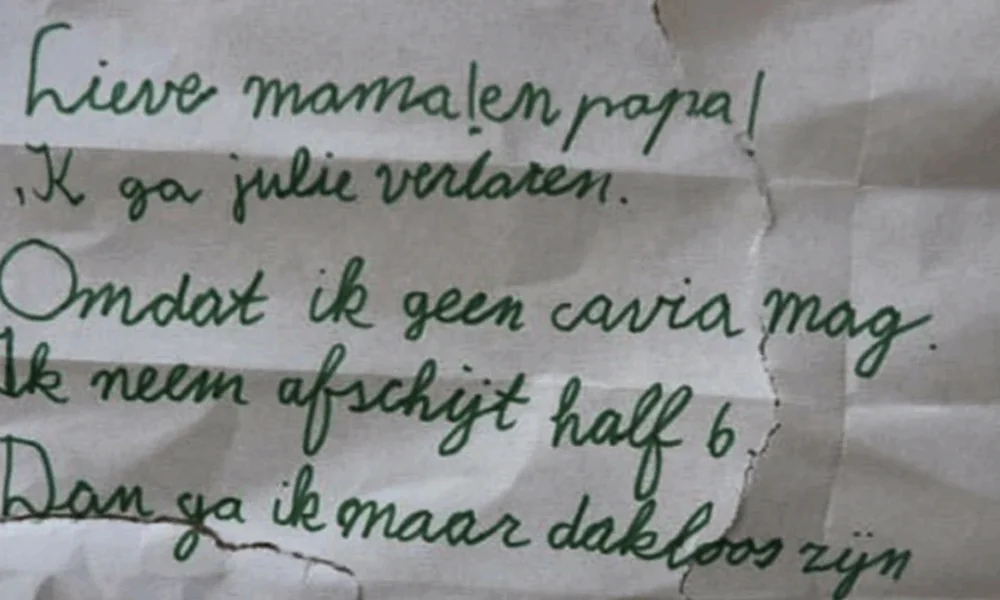 Lieve mama!en papa!
Ik ga julie verlaten.
Omdat ik geen cavia mag.
Ik neem afschijt half 6.
Dan ga ik maar dakloos zijn